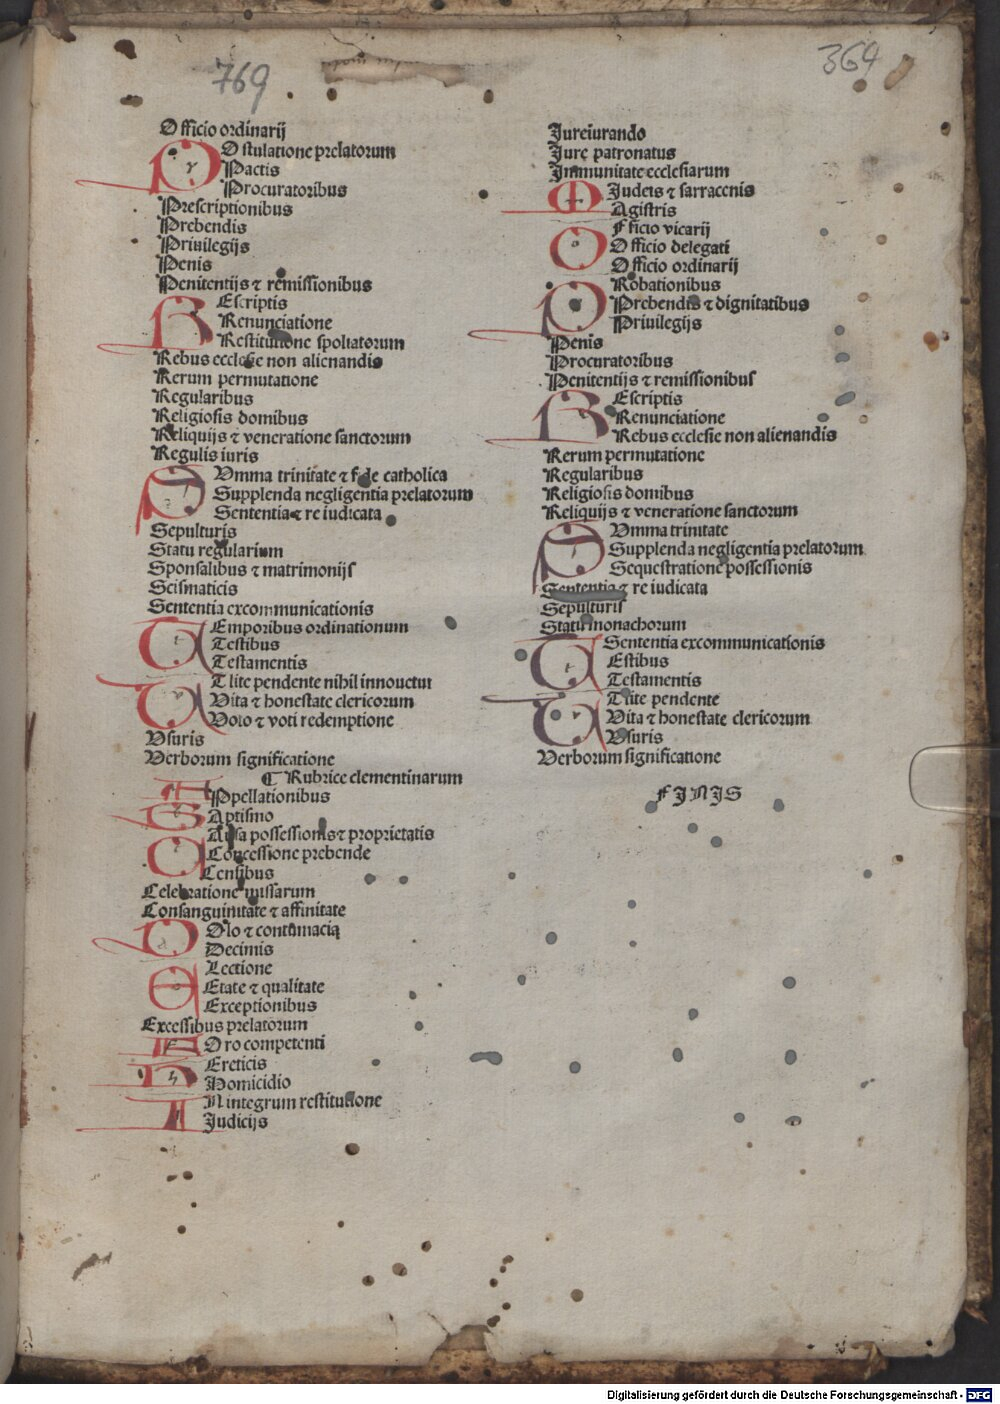 769
364
Officio ordinarij
POstulatione prelatorum
Pactis
Procuratoribus
Prescriptionibus
Prebendis
Priuilegijs
Penis
Penitentijs ⁊ remissionibus
REscriptis
Renunciatione
Restitutione spoliatorum
Rebus ecclesie non alienandis
Rerum permutatione
Regularibus
Religiosis domibus
Reliquijs ⁊ veneratione sanctorum
Regulis iuris
SUmma trinitate ⁊ fide catholica
Supplenda negligentia prelatorum
Sententia ⁊ re iudicata
Sepulturis
Statu regularium
Sponsalibus ⁊ matrimonijs
Scismaticis
Sententia excommunicationis
TEmporibus ordinationum
Testibus
Testamentis
UT lite pendente nihil innouetur
Vita ⁊ honestate clericorum
Voto ⁊ voti redemptione
Vsuris
Verborum significatione
¶ Rubrice clementinarum
APpellationibus
BAptismo
CAusa possessionis ⁊ proprietatis
Concessione prebende
Censibus
Celebratione missarum
Consanguinitate ⁊ affinitate
DOlo ⁊ contumacia
Decimis
ELectione
Etate ⁊ qualitate
Exceptionibus
Excessibus prelatorum
FOro competenti
HEreticis
Homicidio
IN integrum restitutione
Judicijs
Jureiurando
Jure patronatus
Immunitate ecclesiarum
Judeis ⁊ sarracenis
MAgistris
OFficio vicarij
Officio delegati
Officio ordinarij
PRobationibus
Prebendis ⁊ dignitatibus
Priuilegijs
Penis
Procuratoribus
Penitentijs ⁊ remissionibus
REscriptis
Renunciatione
Rebus ecclesie non alienandis
Rerum permutatione
Regularibus
Religiosis domibus
Reliquijs ⁊ veneratione sanctorum
SUmma trinitate
Supplenda negligentia prelatorum
Sequestratione possessionis
Sententia ⁊ re iudicata
Sepulturis
Statu monachorum
Sententia excommunicationis
TEstibus
Testamentis
UT lite pendente
Vita ⁊ honestate clericorum
Vsuris
Verborum significatione
FINIS
Digitalisierung gefördert durch die Deutsche Forschungsgemeinschaft - DFG